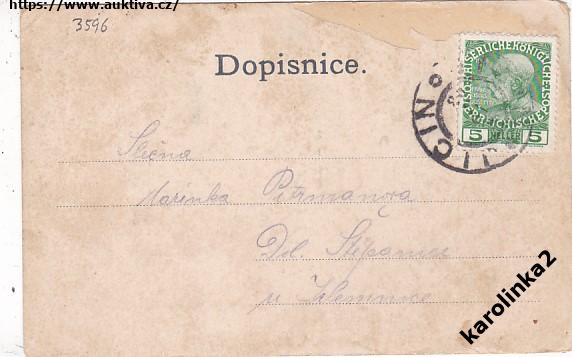 https://www.auktiva.cz/
3596
Dopisnice.
KAISERLICHE KÖNIGLICHE
ÖSTERREICHISCHE
5 HELLER 5
JIČIN
Slečna
Marinka Pitrmanova
Dol. Štěpanice
u Jilemnice
karolinka2